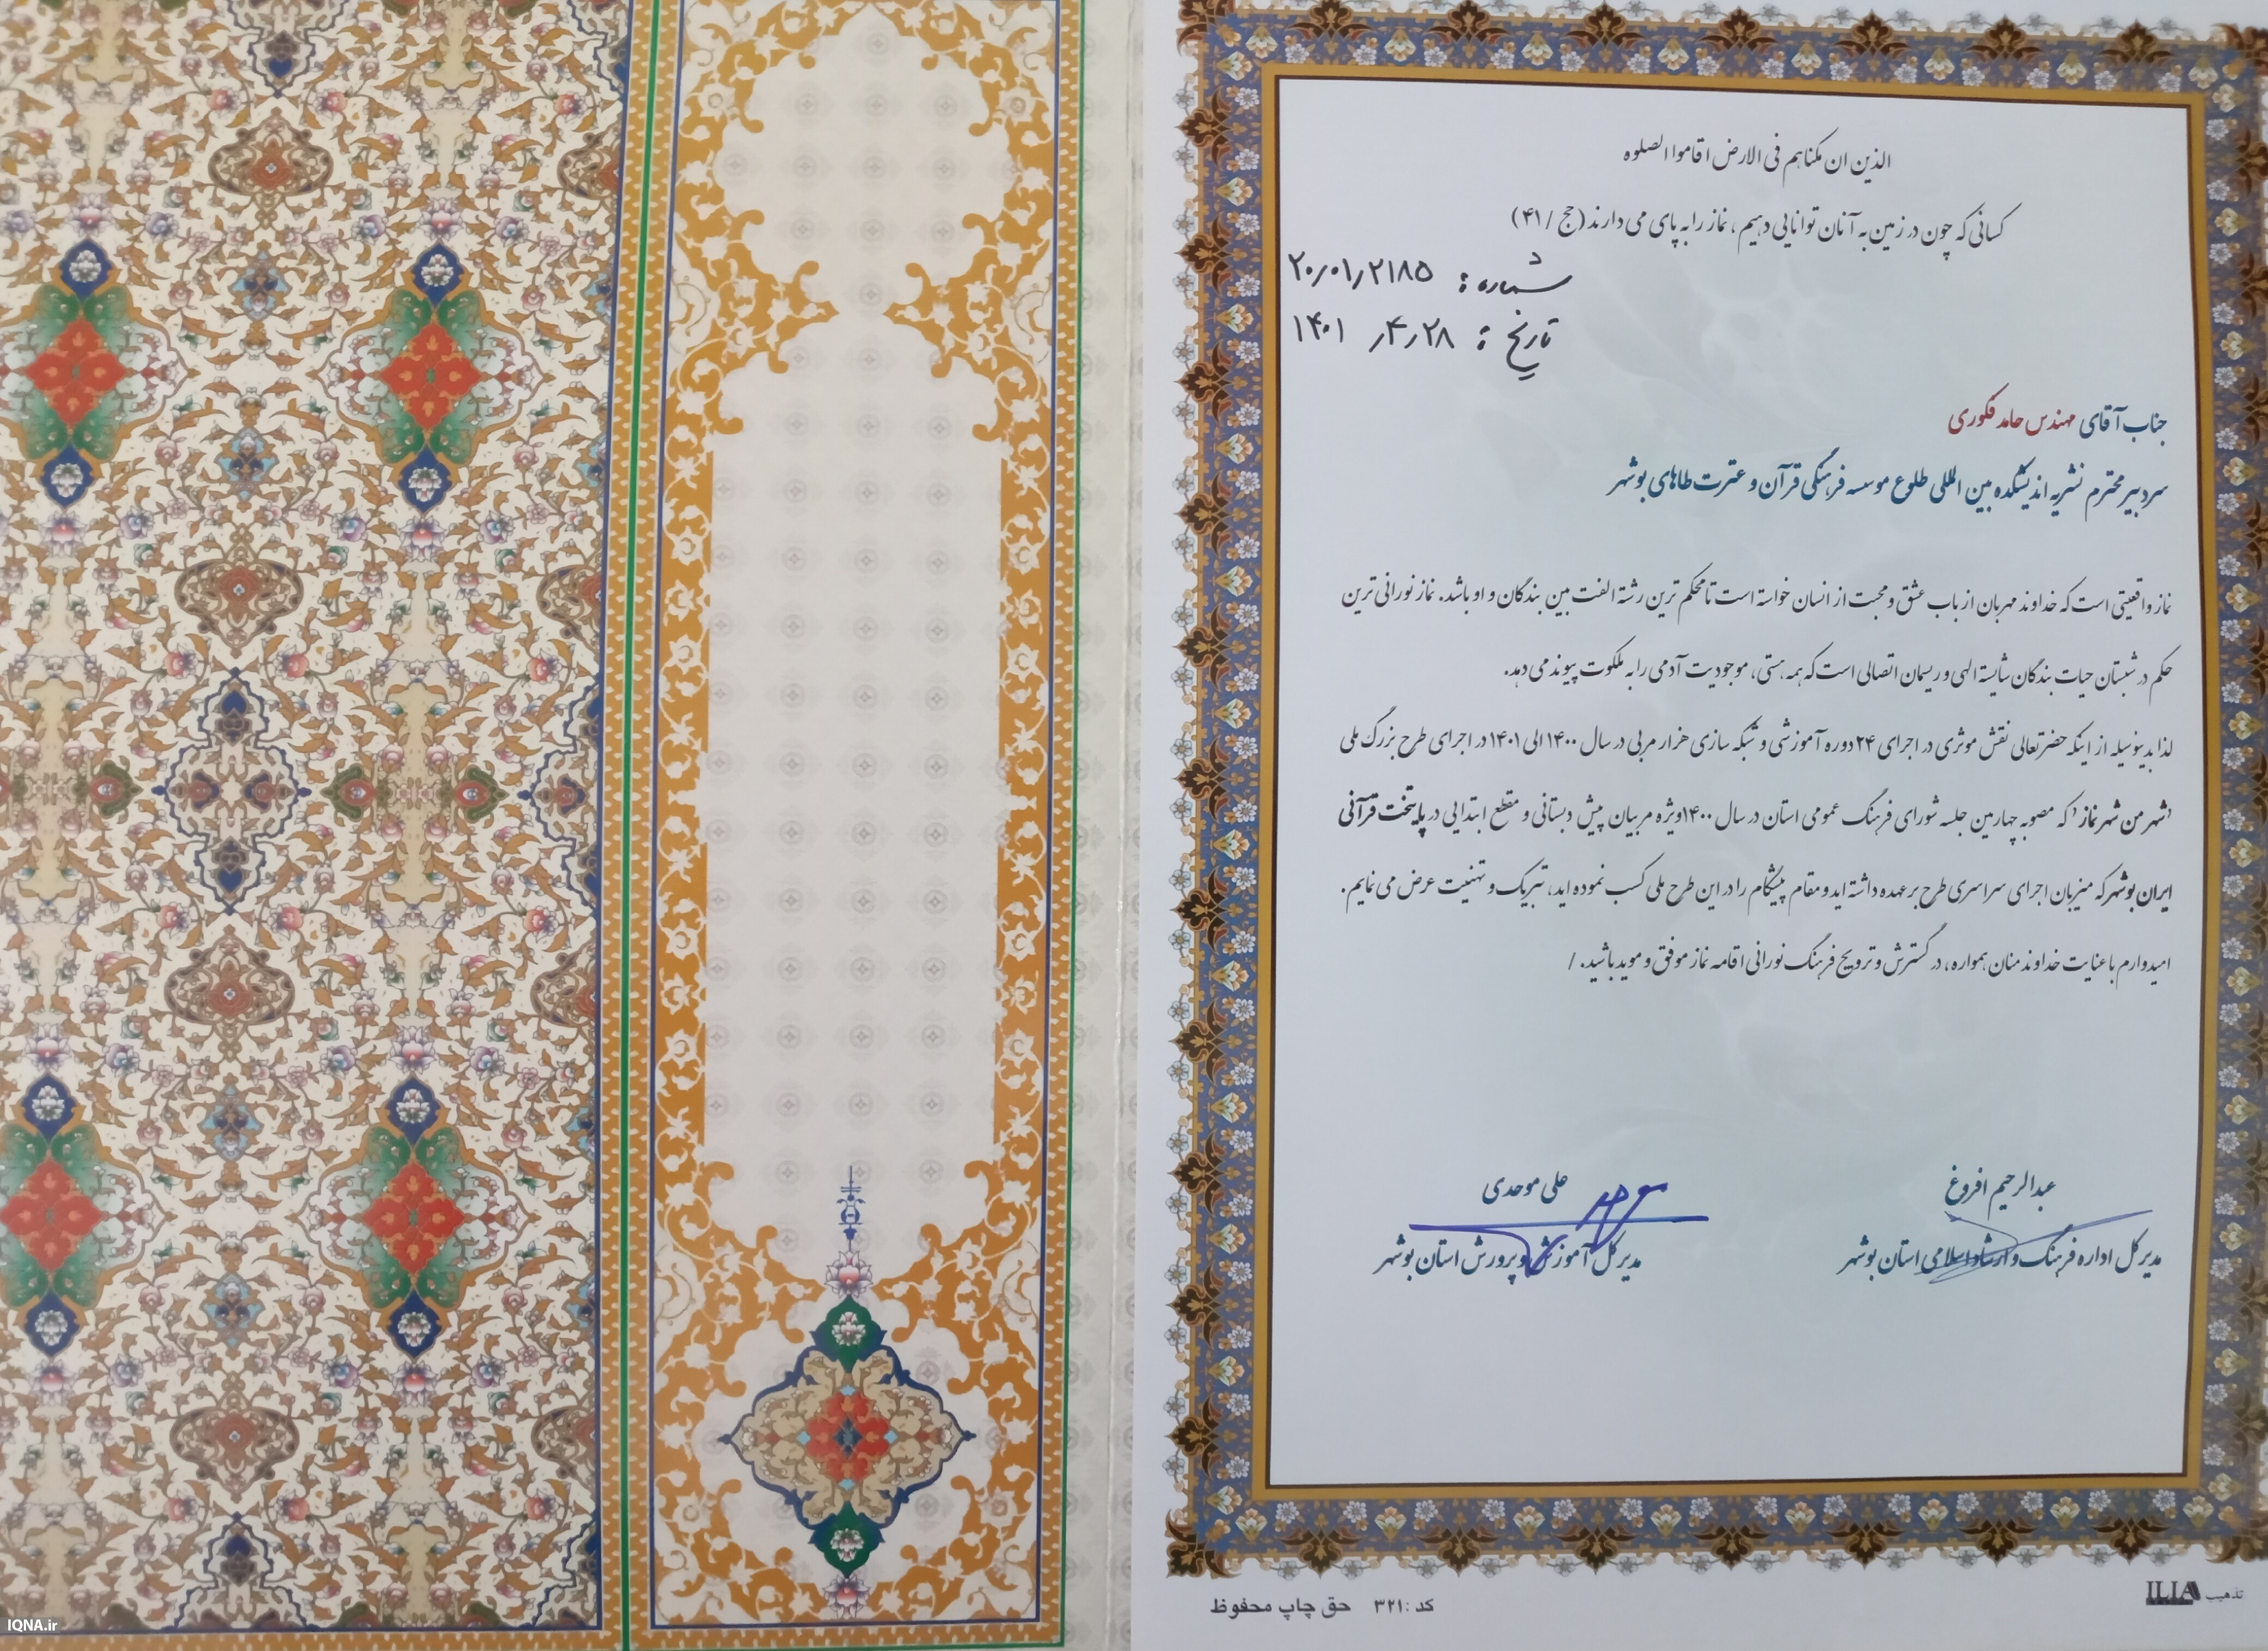 الذین ان مکناهم فی الارض اقاموا الصلوه
کسانی که چون در زمین به آنان توانایی دهیم، نماز را به پای می دارند (حج / ۴۱)
شماره: ۲۰/۰۱/۲۱۸۵
تاریخ: ۱۴۰۱/۴/۲۸
جناب آقای مهندس حامد فکوری
سردبیر محترم نشریه اندیشکده بین المللی طلوع موسسه فرهنگی قرآن و عترت طاهای بوشهر
نماز واقعیتی است که خداوند مهربان از باب عشق و محبت از انسان خواسته است تا محکم ترین رشته الفت بین بندگان و او باشد. نماز نورانی ترین
حکم در شبستان حیات بندگان شایسته الهی و ریسمان اتصالی است که همه هستی، موجودیت آدمی را به ملکوت پیوند می دهد.
لذا بدینوسیله از اینکه حضرتعالی نقش موثری در اجرای ۲۴ دوره آموزشی و شبکه سازی هزار مربی در سال ۱۴۰۰ الی ۱۴۰۱ در اجرای طرح بزرگ ملی
'شهر من شهر نماز' که مصوبه چهارمین جلسه شورای فرهنگ عمومی استان در سال ۱۴۰۰ ویژه مربیان پیش دبستانی و مقطع ابتدایی در پایتخت قرآنی
ایران بوشهر که میزبان اجرای سراسری طرح بر عهده داشته اید و مقام پیشگام را در این طرح ملی کسب نموده اید، تبریک و تهنیت عرض می نمایم.
امیدوارم با عنایت خداوند منان همواره، در گسترش و ترویج فرهنگ نورانی اقامه نماز موفق و موید باشید. /
عبدالرحیم افروغ
مدیرکل اداره فرهنگ و ارشاد اسلامی استان بوشهر
علی موحدی
مدیرکل آموزش و پرورش استان بوشهر
تذهیب ILIA
کد: ۳۲۱ حق چاپ محفوظ
IQNA.ir